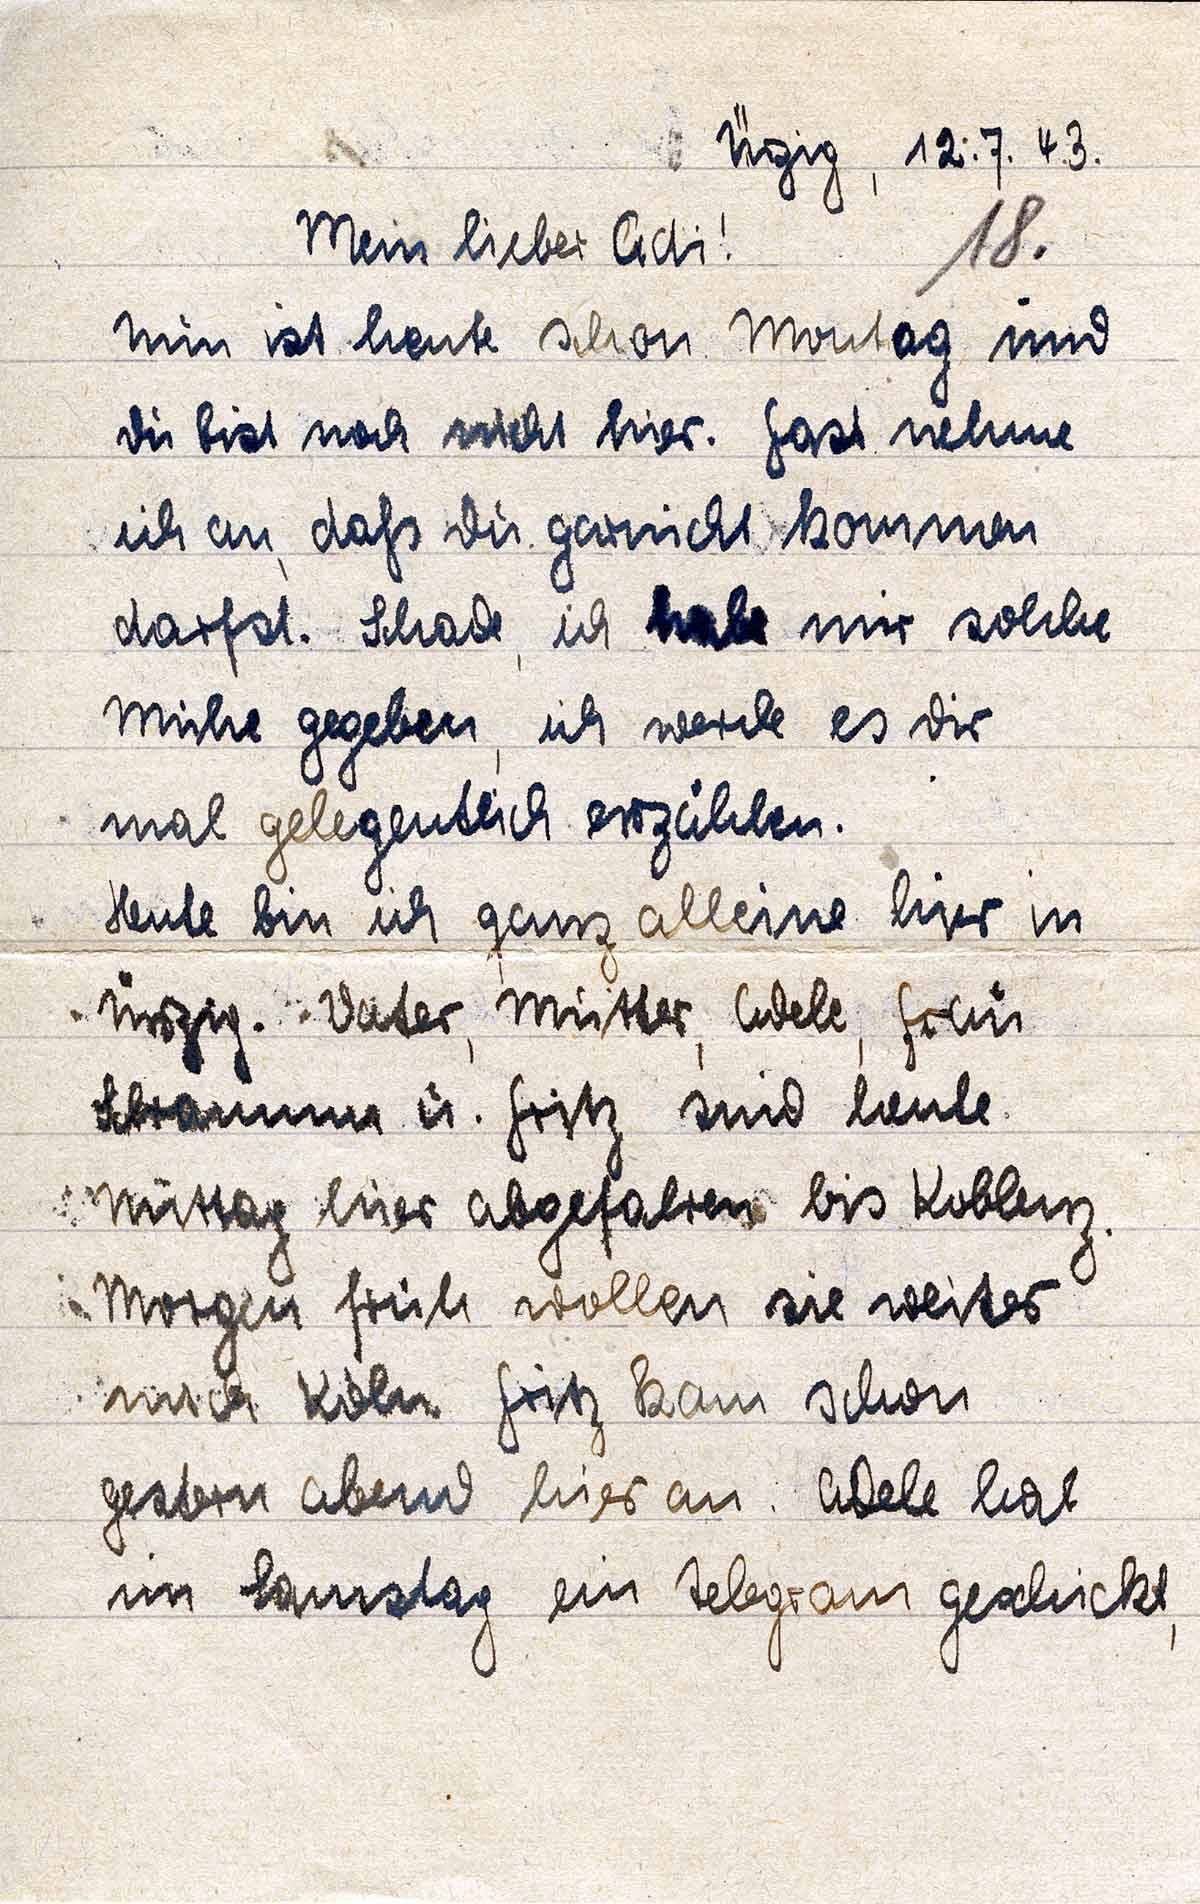 Ürzig, 12.7.43.
18.
Mein lieber Adi!
Nun ist heute schon Montag und
du bist noch nicht hier. Fast nehme
ich an, daß du garnicht kommen
darfst. Schade, ich habe mir solche
Mühe gegeben, ich werde es dir
mal gelegentlich erzählen.
Heute bin ich ganz alleine hier in
Ürzig. Vater, Mutter, Adele, Frau
Schramm u. Fritz sind heute
Mittag hier abgefahren bis Koblenz.
Morgen früh wollen sie weiter
nach Köln. Fritz kam schon
gestern abend hier an. Adele hat
im Samstag ein Telegram geschickt,